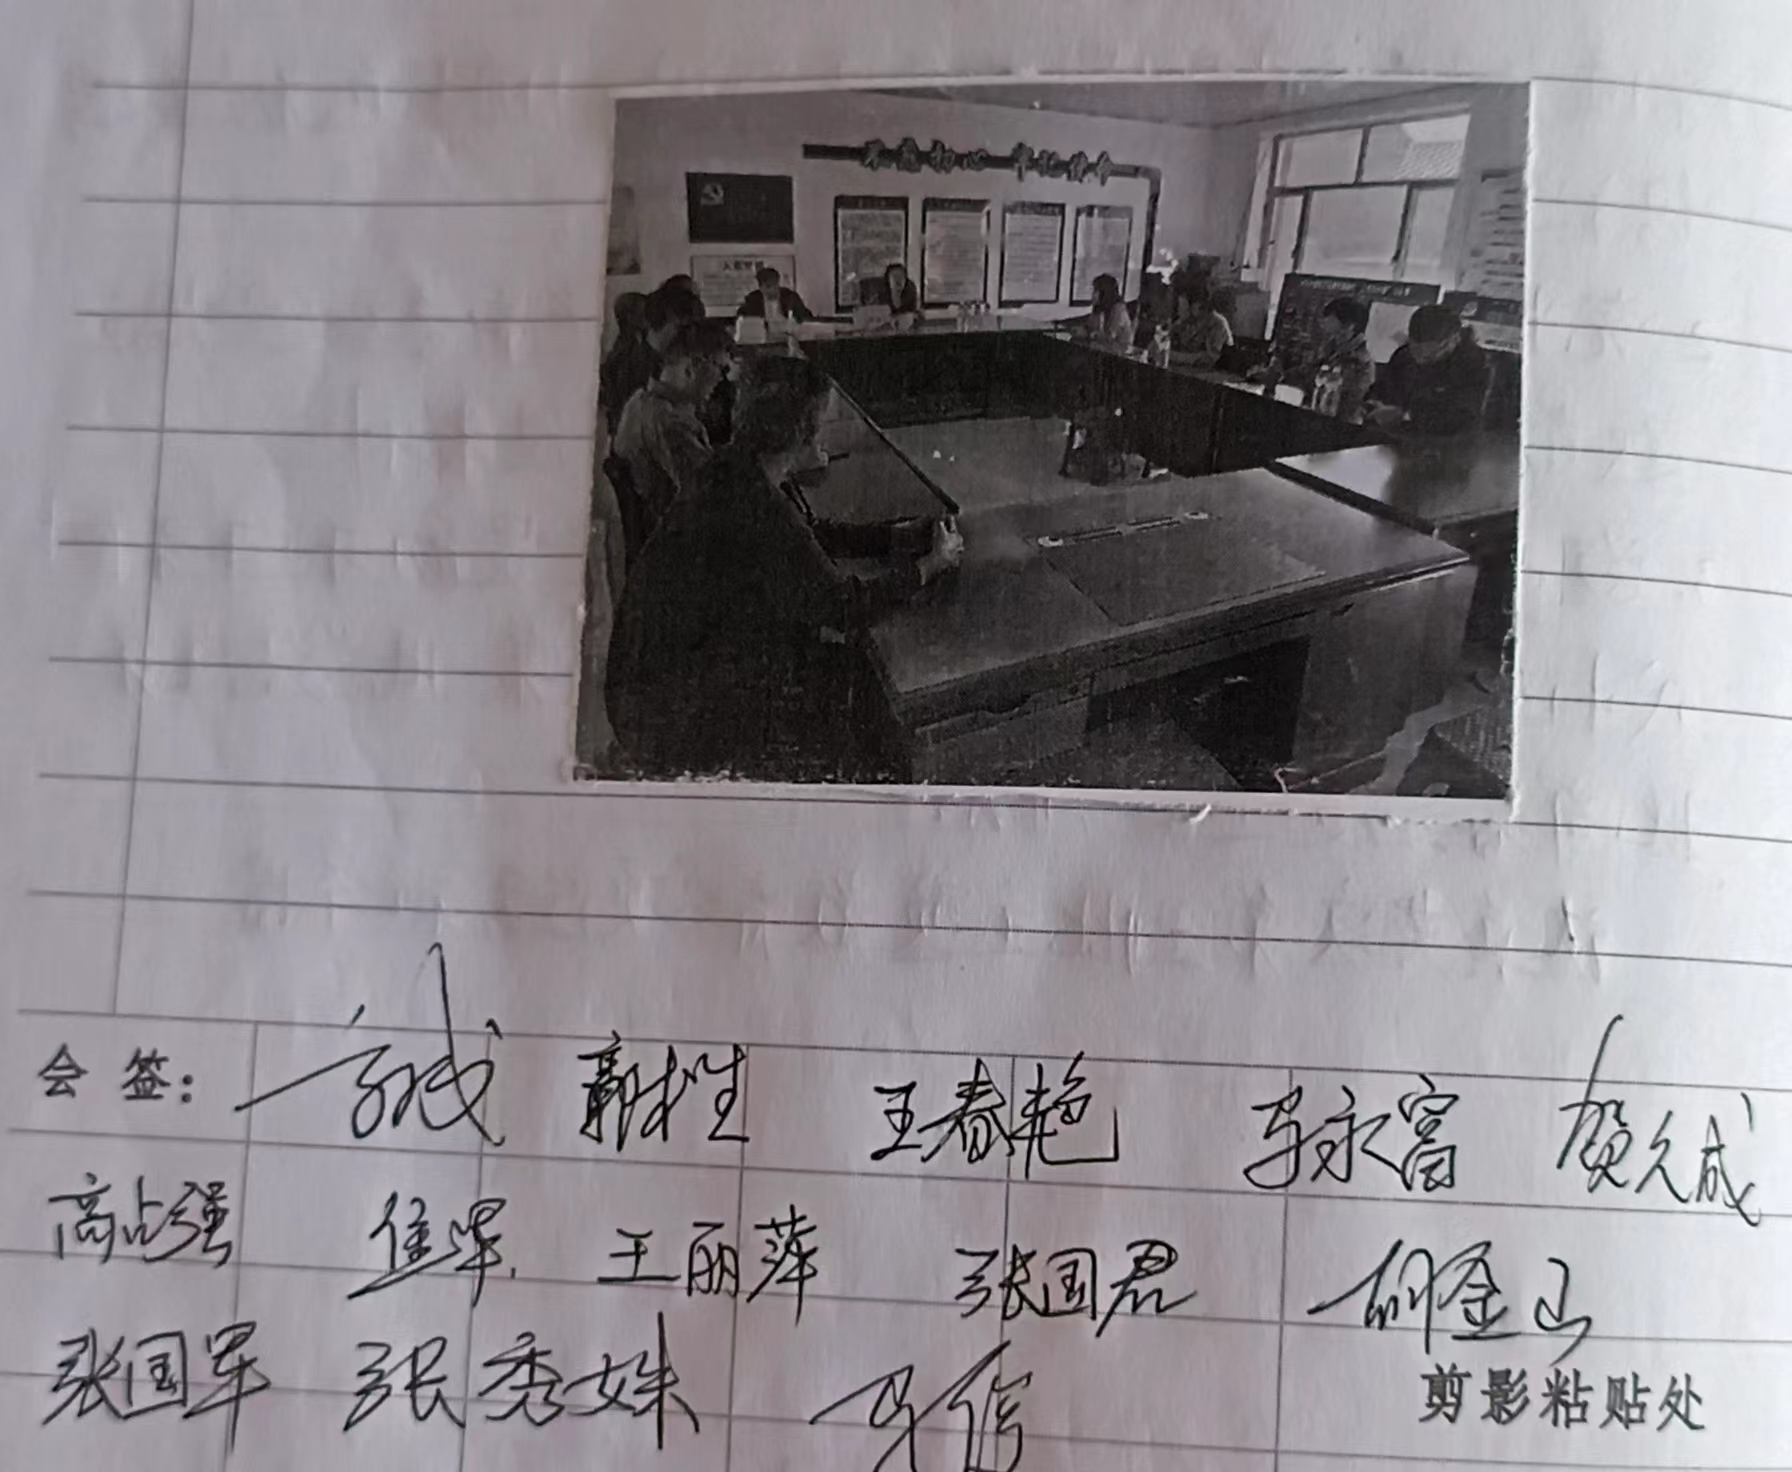 不忘初心 牢记使命
入党誓词
会 签： 王春艳 马永富 贺久成
高占强 焦军 王丽萍 张国君 胡金山
张国军 张秀姝 马信
剪影粘贴处